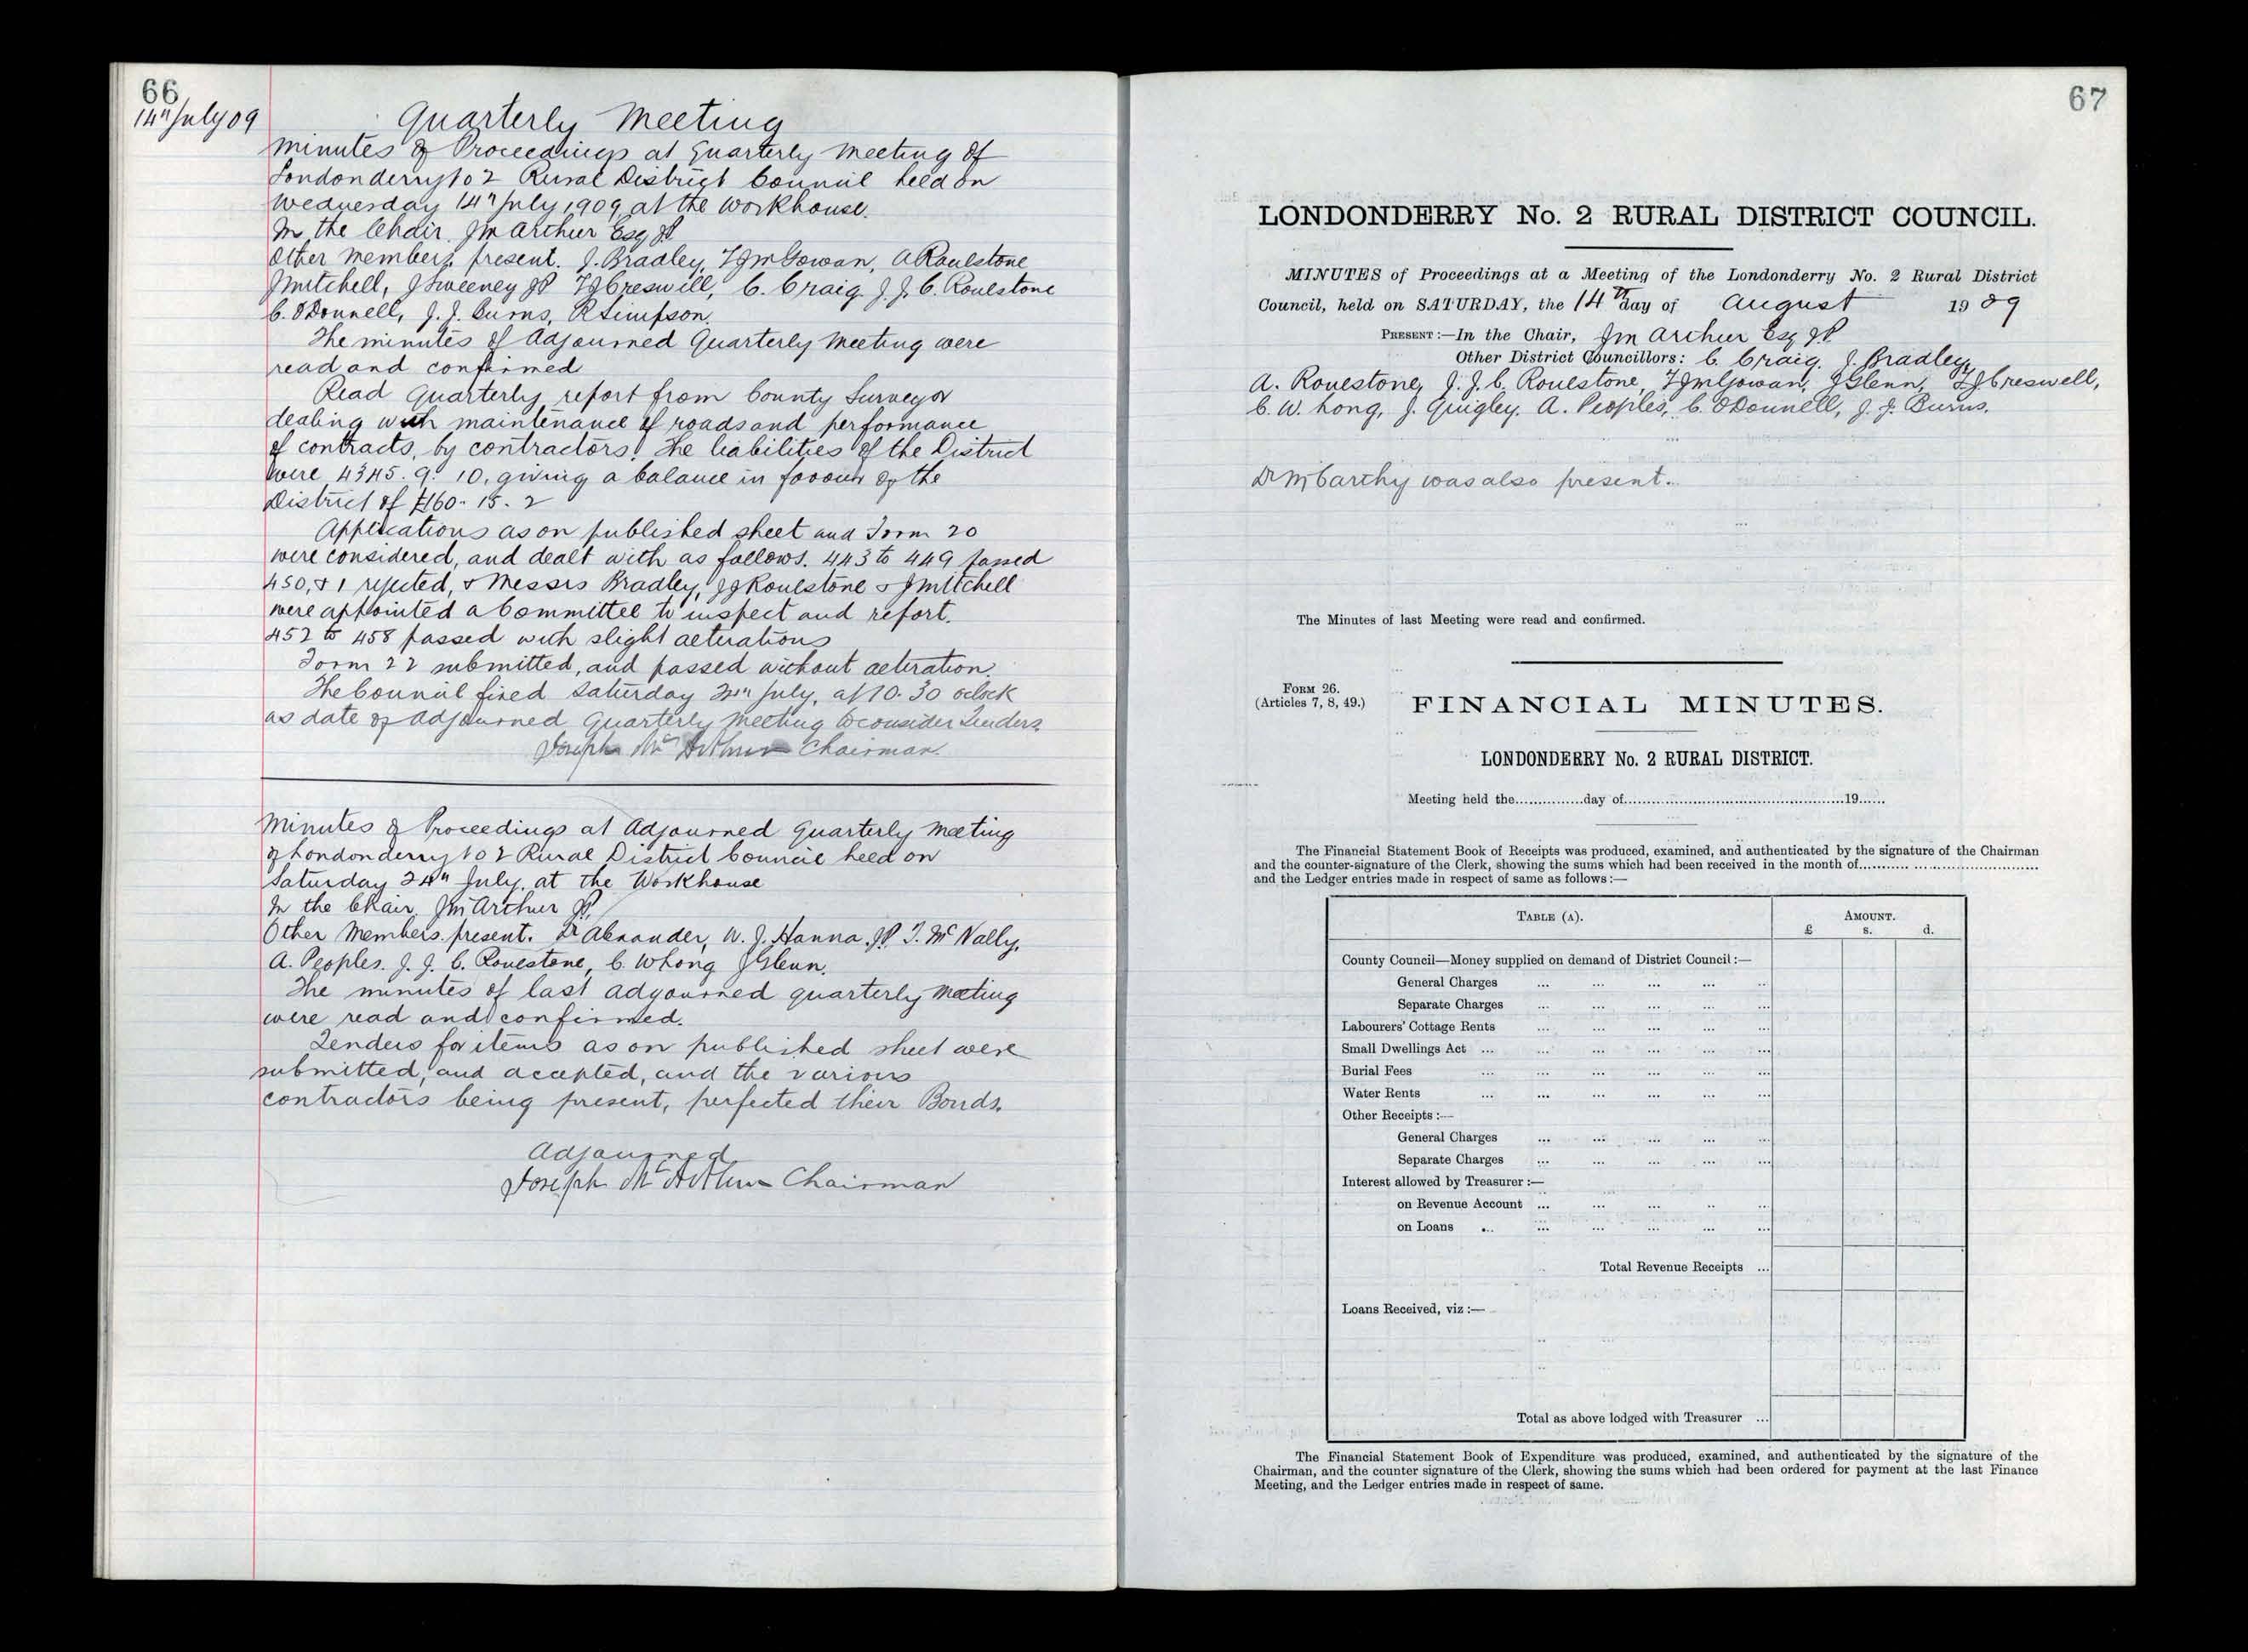 66
14th July 09
Quarterly Meeting
Minutes of Proceedings at Quarterly Meeting of
Londonderry No 2 Rural District Council held on
Wednesday 14th July, 1909, at the Workhouse.
In the Chair. J McArthur Esq J.P.
Other Members present. J. Bradley, T J McGowan, A Roulstone
J Mitchell, J Sweeney JP T J Creswell, C. Craig. J. J. C. Roulstone
C. O'Donnell, J. J. Burns, R Simpson.
The minutes of Adjourned Quarterly Meeting were
read and confirmed
Read Quarterly report from County Surveyor
dealing with maintenance of roads and performance
of contracts, by contractors. The liabilities of the District
were 4345. 9. 10, giving a balance in favour of the
District of £160. 15. 2
Applications as on published sheet and Form 20
were considered, and dealt with as follows. 443 to 449 passed
450, & 1 rejected, & Messrs Bradley, J J Roulstone & J Mitchell
were appointed a Committee to inspect and report.
452 to 458 passed with slight alterations
Form 22 submitted, and passed without alteration.
The Council fixed Saturday 24th July, at 10.30 oclock
as date of Adjourned Quarterly Meeting to consider Tenders.
Joseph McArthur Chairman
Minutes of Proceedings at Adjourned Quarterly Meeting
of Londonderry No 2 Rural District Council held on
Saturday 24th July. at the Workhouse
In the Chair. J McArthur JP,
Other Members present. Dr Alexander, W. J. Hanna. J.P. T. McNally,
A. Peoples. J. J. C. Roulstone, C. W Long J Glenn.
The minutes of last adjourned quarterly Meeting
were read and confirmed.
Tenders for items as on published sheet were
submitted, and accepted, and the various
contractors being present, perfected their Bonds.
Adjourned
Joseph McArthur Chairman
67
LONDONDERRY No. 2 RURAL DISTRICT COUNCIL.
MINUTES of Proceedings at a Meeting of the Londonderry No. 2 Rural District
Council, held on SATURDAY, the 14th day of August 1909
PRESENT:—In the Chair, J McArthur Esq JP
Other District Councillors: C. Craig. J. Bradley,
A. Roulstone, J. J. C. Roulstone, T J McGowan, J Glenn, T J Creswell,
C. W. Long, J. Quigley. A. Peoples, C. O'Donnell, J. J. Burns.
Dr McCarthy was also present.
The Minutes of last Meeting were read and confirmed.
FORM 26.
(Articles 7, 8, 49.)
FINANCIAL MINUTES.
LONDONDERRY No. 2 RURAL DISTRICT.
Meeting held the...............day of................................................19......
The Financial Statement Book of Receipts was produced, examined, and authenticated by the signature of the Chairman
and the counter-signature of the Clerk, showing the sums which had been received in the month of.......................................
and the Ledger entries made in respect of same as follows:—
TABLE (A). AMOUNT.
£ s. d.
County Council—Money supplied on demand of District Council:—
General Charges ... ... ... ... ...
Separate Charges ... ... ... ... ...
Labourers' Cottage Rents ... ... ... ... ...
Small Dwellings Act ... ... ... ... ... ...
Burial Fees ... ... ... ... ... ...
Water Rents ... ... ... ... ... ...
Other Receipts:—
General Charges ... ... ... ... ...
Separate Charges ... ... ... ... ...
Interest allowed by Treasurer:—
on Revenue Account ... ... ... ... ...
on Loans ... ... ... ... ... ...
Total Revenue Receipts ...
Loans Received, viz:—
Total as above lodged with Treasurer ...
The Financial Statement Book of Expenditure was produced, examined, and authenticated by the signature of the
Chairman, and the counter signature of the Clerk, showing the sums which had been ordered for payment at the last Finance
Meeting, and the Ledger entries made in respect of same.